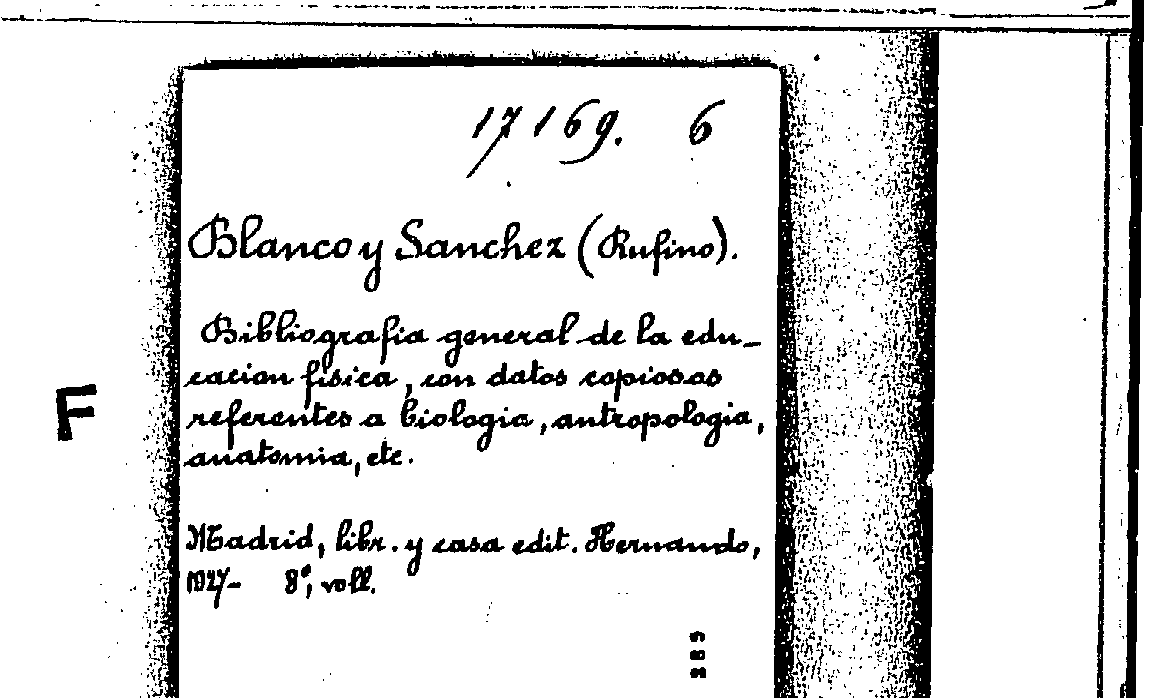 17169. 6
Blanco y Sanchez (Rufino).
Bibliografia general de la edu-
cacion fisica, con datos copiosos
referentes a biologia, antropologia,
anatomia, etc.
F
Madrid, libr. y casa edit. Hernando,
1927- 8°, voll.